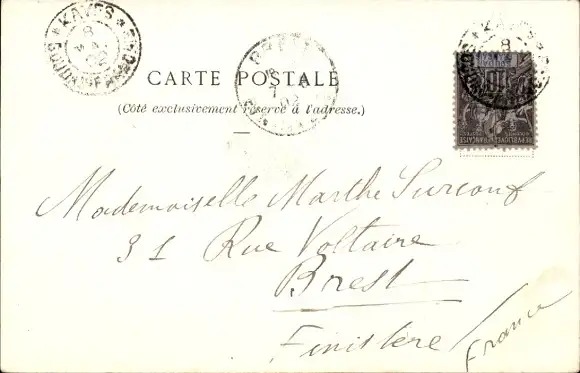 KAYES
8
SOUDAN FRANÇAIS
BREST
7
CARTE POSTALE
(Côté exclusivement réservé à l'adresse.)
KAYES
8
10
RÉPUBLIQUE FRANÇAISE
Mademoiselle Marthe Surcouf
31 Rue Voltaire
Brest
Finistère
France